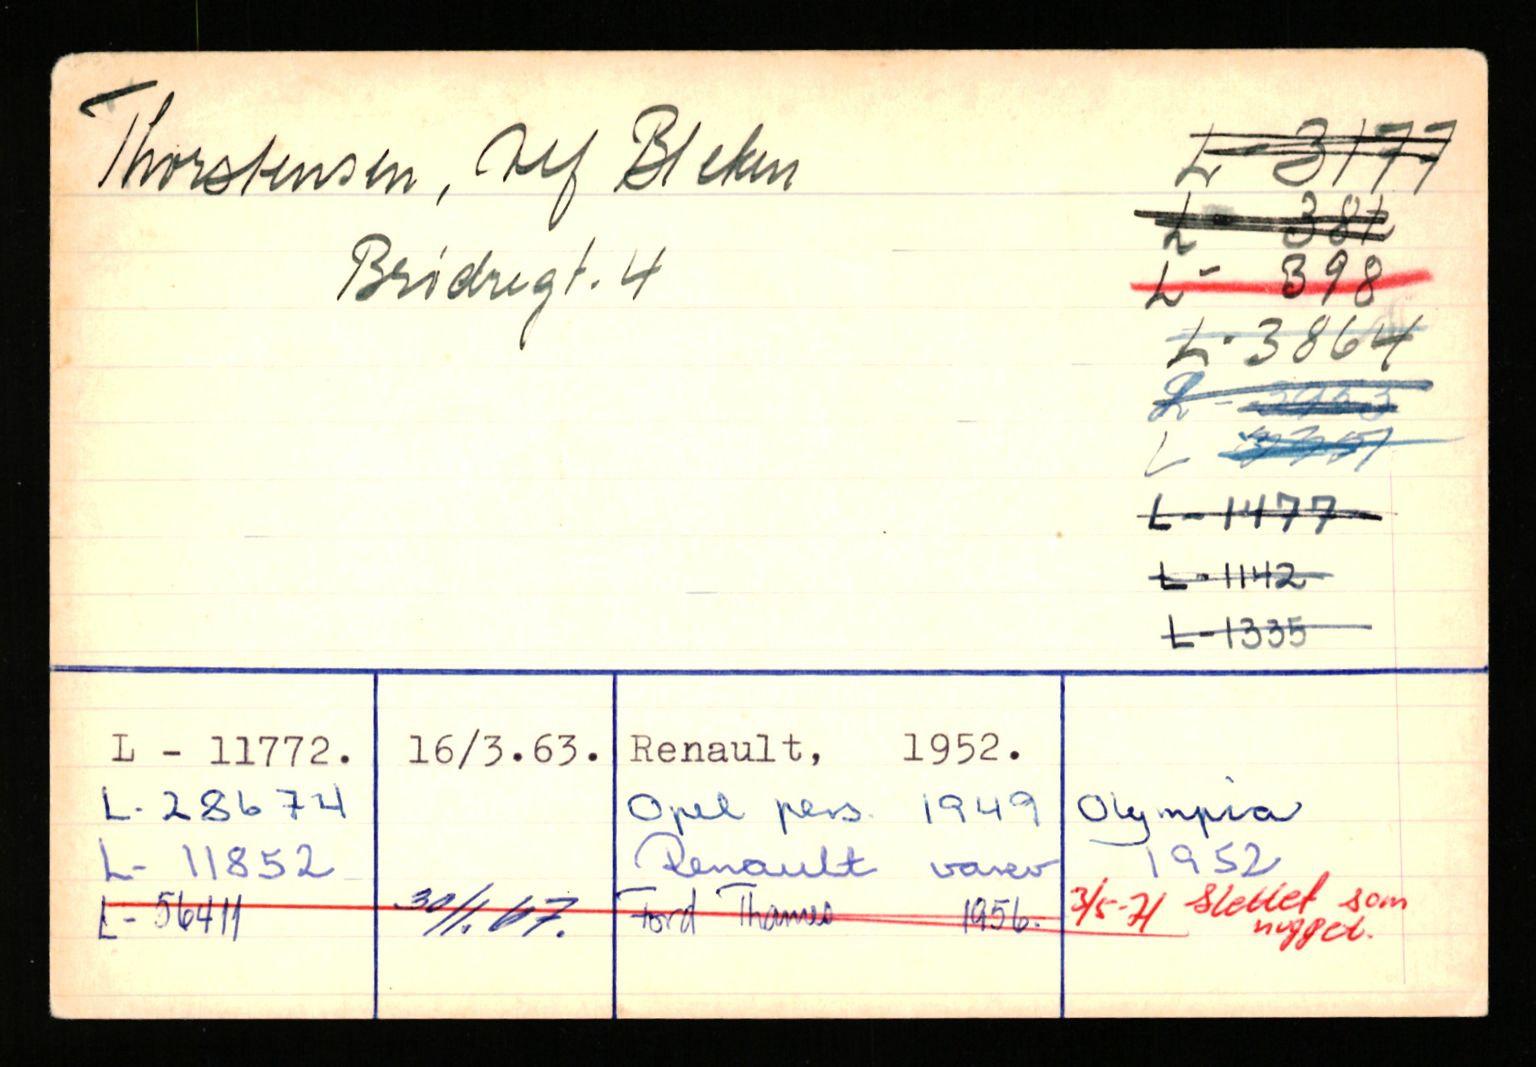 Thorstensen, Alf Bleken
Brødregt. 4
L - 3177
L - 381
L - 398
L - 3864
L -
L
L - 1477
L - 1142
L - 1335
L - 11772. 16/3.63. Renault, 1952.
L. 28674 Opel pers. 1949 Olympia
L - 11852 Renault varev 1952
L - 56411 30/1.67. Ford Thames 1956. 3/5-71 Slettet som
nugget.